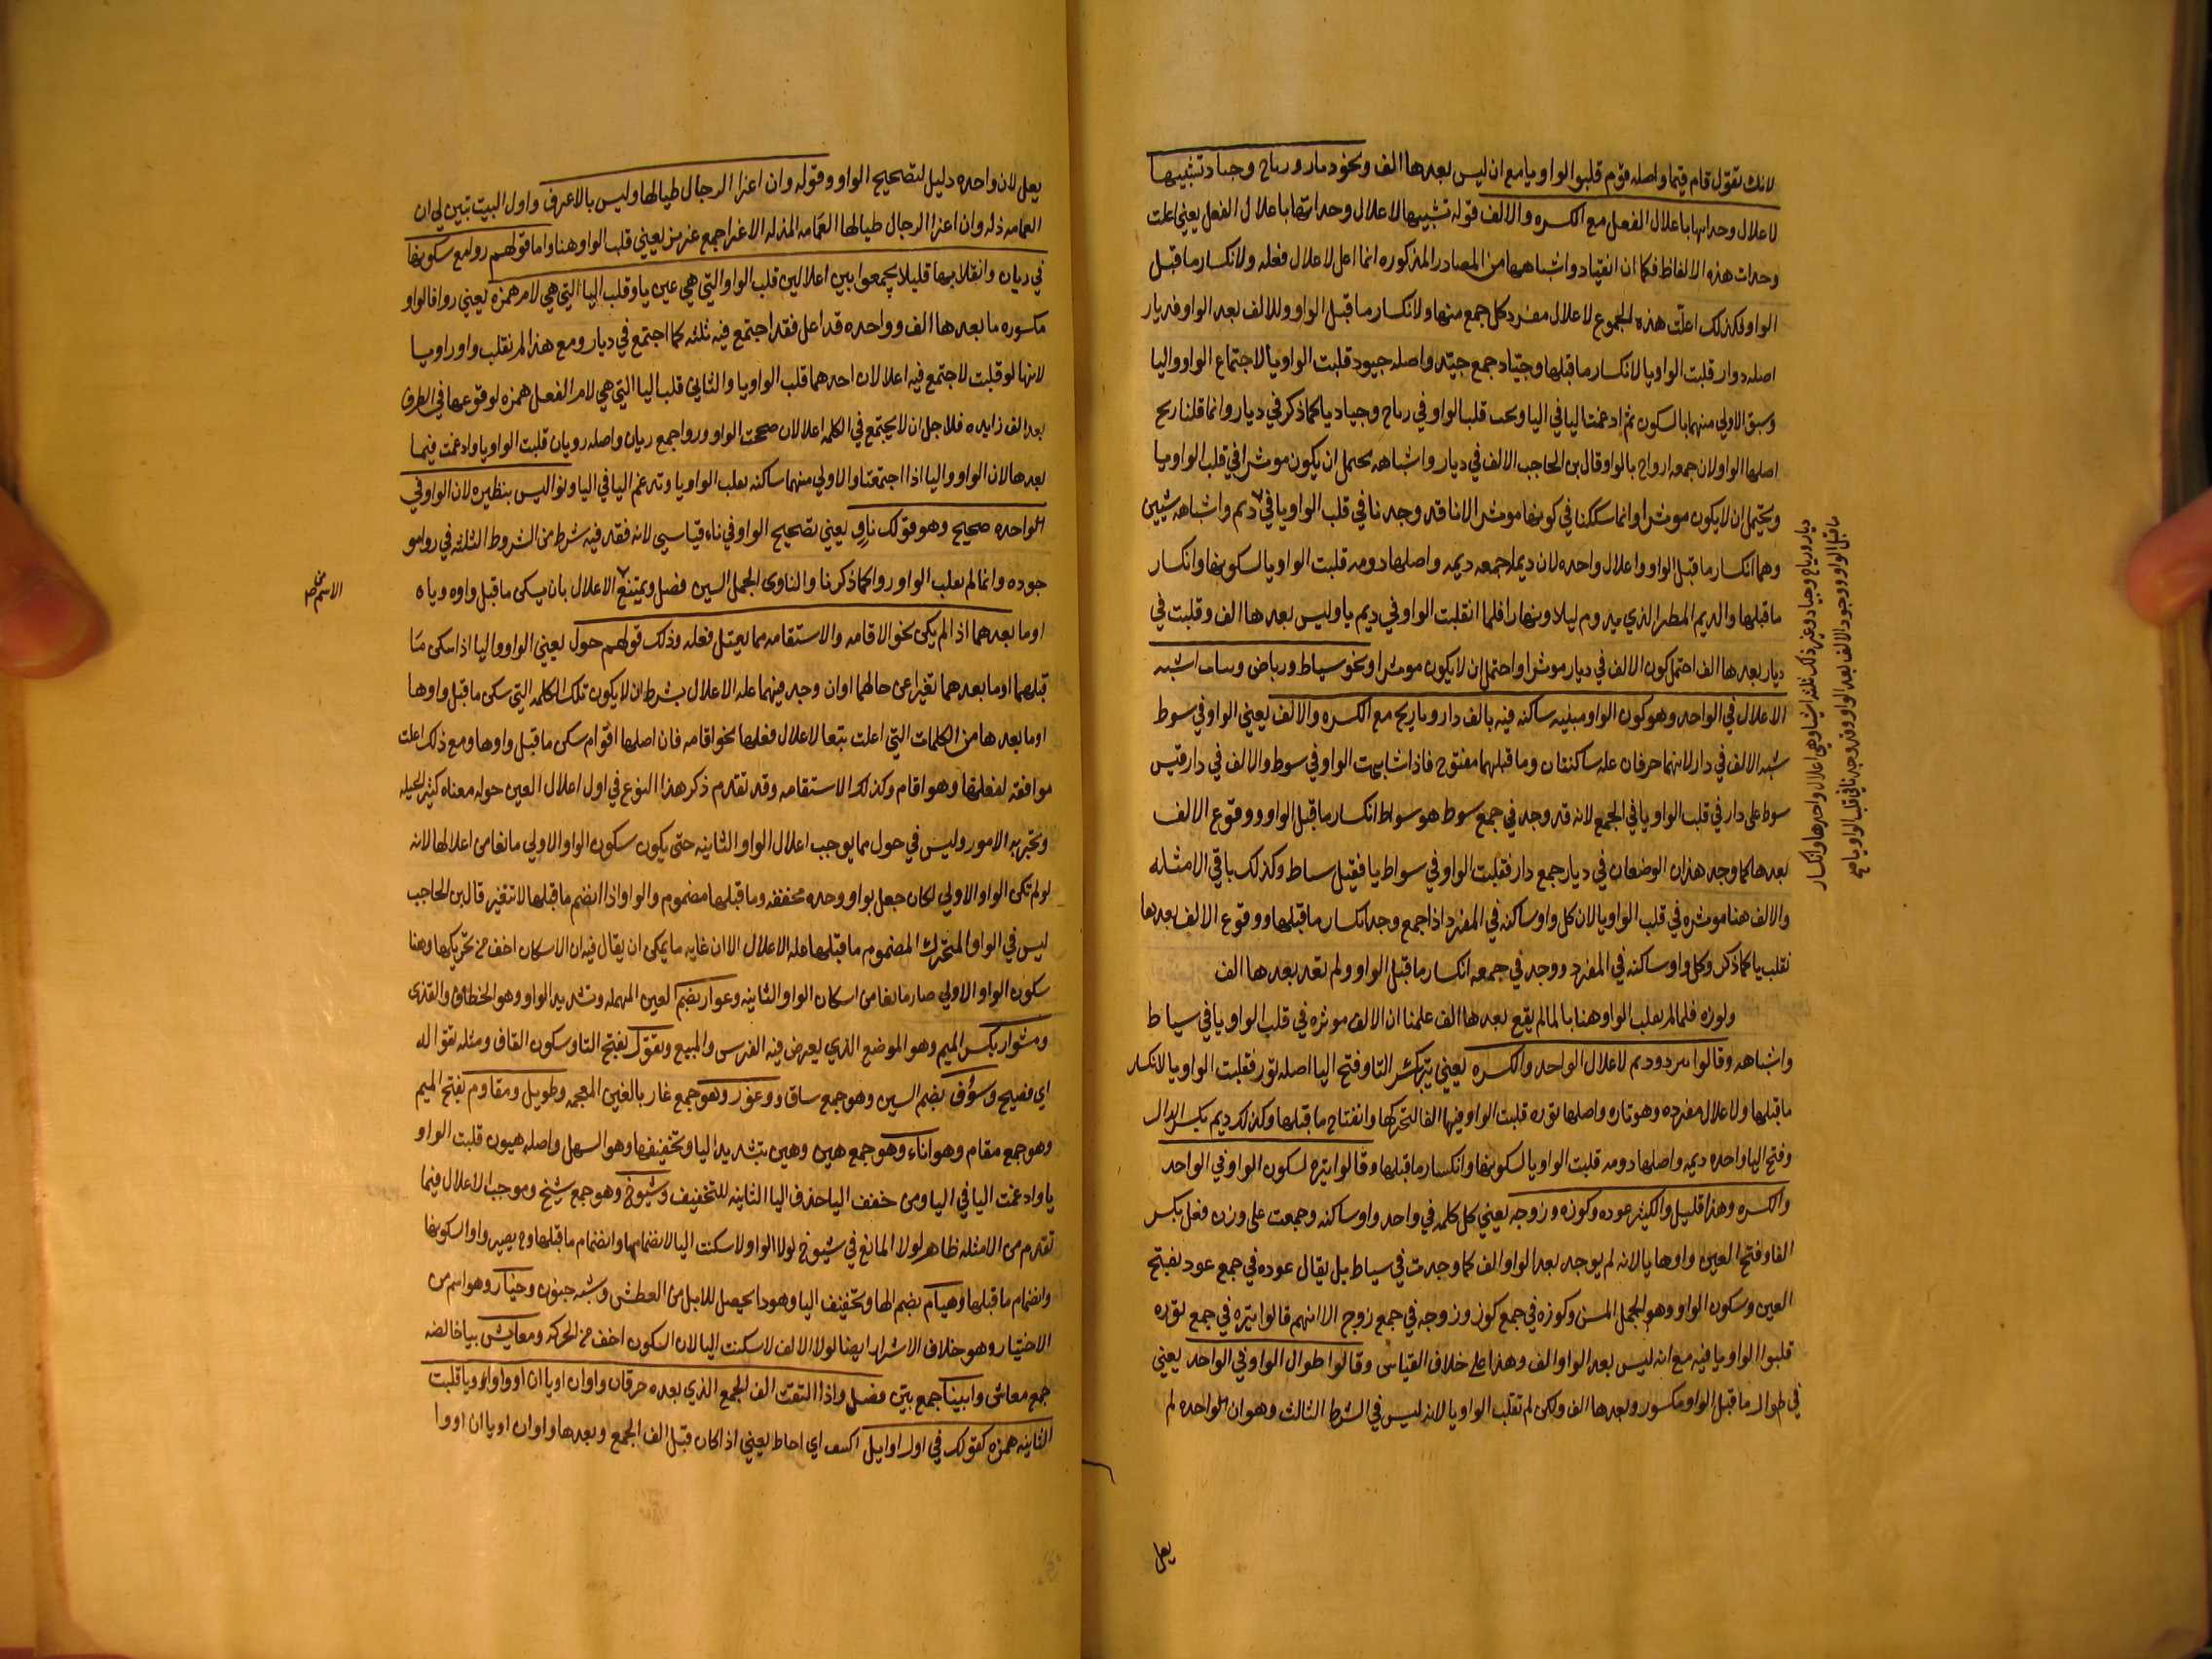 لانك تقول قام قيما واصله قوم قلبوا الواو يا مع ان ليس بعدها الف ونحو ديار ورياح وجياد تشبيها
لاعلال وحدانها باعلال الفعل مع الكسره والالف قوله تشبيها لاعلال وحداتها باعلال الفعل يعني اعلت
وحدات هذه الالفاظ فكما ان انقياد واشباهها من المصادر المذكوره انما اعل لاعلال فعله ولانكسار ما قبل
الواو فكذلك اعلت هذه الجموع لاعلال مفرد كل جمع منها ولانكسار ما قبل الواو وللالف بعد الواو فديار
اصله دوار قلبت الواو يا لانكسار ما قبلها وجياد جمع جيد واصله جيود قلبت الواو يا لاجتماع الواو واليا
وسبق الاولي منهما بالسكون ثم ادغمت اليا في اليا ويجب قلب الواو في رياح وجياد يا كما ذكر في ديار وانما قلنا ريح
اصلها الواو لان جمعه ارواح بالواو قال بن الحاجب الالف في ديار واشباهه يحتمل ان يكون موثرا في قلب الواو يا
ويحتمل ان لا يكون موثرا وانما سككنا في كونها موثر الانا قد وجدنا في قلب الواو يا في ديم واشباهه شيين
وهما انكسار ما قبل الواو واعلال واحده لان ديما جمعه ديمه واصلها دومه قلبت الواو يا لسكونها وانكسار
ما قبلها والديم المطر الذي يدوم ليلا ونهارا فلما انقلبت الواو في ديم يا وليس بعدها الف وقلبت في
ديار بعدها الف احتمل كون الالف في ديار موثرا واحتمل ان لا يكون موثرا ونحو سياط ورياض وساب اشبه
الاعلال في الواحد وهو كون الواو مبنيه ساكنه فيه بالف دار ويا ريح مع الكسره والالف يعني الواو في سوط
شبه الالف في دار لانهما حرفان عله ساكنتان وما قبلهما مفتوح فاذا شابهت الواو في سوط والالف في دار قيس
سوط علي دار في قلب الواو يا في الجمع لانه قد وجد في جمع سوط هو سواط انكسار ما قبل الواو ووقوع الالف
بعدها كما وجد هذان الوضعان في ديار جمع دار فقلبت الواو في سواط يا فقيل سياط وكذلك باقي الامثله
والالف هنا موثره في قلب الواو يا لان كل واو ساكنه في المفرد اذا جمع وجد انكسار ما قبلها ووقوع الالف بعدها
تقلب يا كما ذكر وكل واو ساكنه في المفرد ووجد في جمعه انكسار ما قبل الواو ولم تعد بعدها الف
وكوزه فلما لم يقلب الواو هنا با لما لم يقع بعدها الف علمنا ان الالف موثره في قلب الواو يا في سياط
واشباهه وقالوا ودیم لاعلال الواحد والكسره يعني تير بكسر التا وفتح اليا اصله تور فقلبت الواو يا لانكسار
ما قبلها ولاعلال مفرده وهو تاره واصلها توره قلبت الواو فيها الفا لتحركها وانفتاح ما قبلها وكذلك ديم بكسر الدال
وفتح اليا واحده ديمه واصلها دومه قلبت الواو يا لسكونها وانكسار ما قبلها وقالوا يتره لسكون الواو في الواحد
والكسره وهذا قليل والكثير عوده وكوزه وزوجه يعني كل كلمه في واحد واو ساكنه وجمعت علي وزن فعل بكسر
الفا وفتح العين واوها يا لانه لم يوجد بعد الواو الف كما وجدت في سياط بل يقال عوده في جمع عود بفتح
العين وسكون الواو وهو الجمل المسن وكوزه في جمع كوز وزوجه في جمع زوج الا انهم قالوا يتره في جمع توره
قلبوا الواو يا فيه مع انه ليس بعد الواو الف وهذا علي خلاف القياس وقالوا طوال الواو في الواحد يعني
في طوال ما قبل الواو مكسور وبعدها الف ولكن لم تقلب الواو يا لانه ليس في الشرط الثالث وهو ان الواحده لم
ديار ورياح وجياد وغير ذلك ثلثه اشيا وهي اعلال واحدها وانكسار
ما قبل الواو ووجود الالف بعد الواو وقد وجدنا في قلب الواو يا
يعل
يعل لان واحده دليل لتصحيح الواو وقوله وان اعزا الرجال طيالها وليس بالاعرف واول البيت تبين لي ان
العمامه ذله وان اعزا الرجال طيالها القمامه المذله الاعزا جمع عزيز يعني قلب الواو هنا واما قولهم رواء مع سكونها
في ديان وانقلابها قليلا يجمعوا بين اعلالين قلب الواو التي هي عين يا وقلب اليا التي هي لام همزه يعني روا فالواو
مكسوره ما بعدها الف وواحده قد اعل فقد اجتمع فيه ثلثه كما اجتمع في ديار ومع هذا لم تقلب واو روا ويا
لانها لو قلبت لاجتمع فيه اعلالان احدهما قلب الواو يا والثاني قلب اليا التي هي لام الفعل همزه لوقوعها في الطرف
بعد الف زايده فلاجل ان لا يجتمع في الكلمه اعلالان صحت الواو وروا جمع ريان واصله رويان قلبت الواو يا وادغمت فيما
بعدها لان الواو واليا اذا اجتمعتا والاولي منهما ساكنه يقلب الواو يا وتدغم اليا في اليا ونوا ليس بنظيره لان الواو في
الواحده صحيح وهو قولك ناو يعني تصحيح الواو في ناء قياسي لانه فقد فيه شرط من الشروط الثلثه في روا مو
جوده وانما لم يقلب الواو روا كما ذكرنا والناوي الجمل السين فصل ويمتنع الاعلال بان يسكن ما قبل واوه وياه
الاسم صح
او ما بعدهما اذا لم يكن نحو الاقامه والاستقامه مما يعتل فعله وذلك قولهم حول يعني الواو واليا اذا سكن ما
قبلهما او ما بعدهما تغيرا عن حالهما اوان وجد فيهما عله الاعلال بشرط ان لا يكون تلك الكلمه التي سكن ما قبل واوها
او ما بعدها من الكلمات التي اعلت تبعا لاعلال فعلها نحو اقامه فان اصلها اقوام سكن ما قبل واوها ومع ذلك اعلت
موافقه لفعلها وهو اقام وكذلك الاستقامه وقد تقدم ذكر هذا النوع في اول اعلال العين حوله معناه كثير الحيله
وتجربه الامور وليس في حول مما يوجب اعلال الواو الثانيه حتي يكون سكون الواو الاولي مانعا من اعلالها لانه
لو لم تكن الواو الاولي لكان جعل بواو وحده مخففه وما قبلها مضموم والواو اذا انضم ما قبلها لا تتغير قال بن الحاجب
ليس في الواو المتحرك المضمومه ما قبلها عله الاعلال الا ان غايه ما يمكن ان يقال فيه ان الاسكان اخف من تحريكها وهنا
سكون الواو الاولي صار مانعا من اسكان الواو الثانيه وعوار بضم العين المهمله وتشديد الواو وهو الخطاف والقذي
ومشوار بكسر الميم وهو الموضع الذي يعرض فيه الفرس والمبيع وتقول بفتح التا وسكون القاف ومثله تقواله
اي فصيح وسؤوق بضم السين وهو جمع ساق وعوور وهو جمع غار بالغين المعجمه وطويل ومقاوم بفتح الميم
وهو جمع مقام وهو اناء وهو جمع هين وهين بتشديد اليا وتخفيفها وهو السهل واصله هيون قلبت الواو
يا وادغمت اليا في اليا ومن خفف اليا حذف اليا الثانيه للتخفيف وشيوخ وهو جمع شيخ وموجب الاعلال فيما
تقدم من الامثله ظاهر لولا المانع في شيوخ لولا الواو لاسكنت اليا لانضمامها وانضمام ما قبلها وح يصير واوا لسكونها
وانضمام ما قبلها وهيام بضم الها وتخفيف اليا وهو دا يحصل للابل من العطش وشبه جنون وخيار وهو اسم من
الاختيار وهو خلاف الاشرار ايضا لولا الالف لاسكنت اليا لان السكون اخف من الحركه ومعايش بيا خالصه
جمع معاش وابينا جمع بين فصل واذا التقت الف الجمع الذي بعده حرفان واوان او ياان او واو ويا قلبت
الثانيه همزه كقولك في اول اوايل اكتنف اي احاط يعني اذا كان قبل الف الجمع وبعدها واوان او ياان او وا